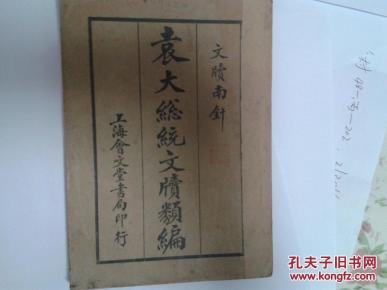 文牘南針
袁大總統文牘類編
上海會文堂書局印行
孔夫子旧书网